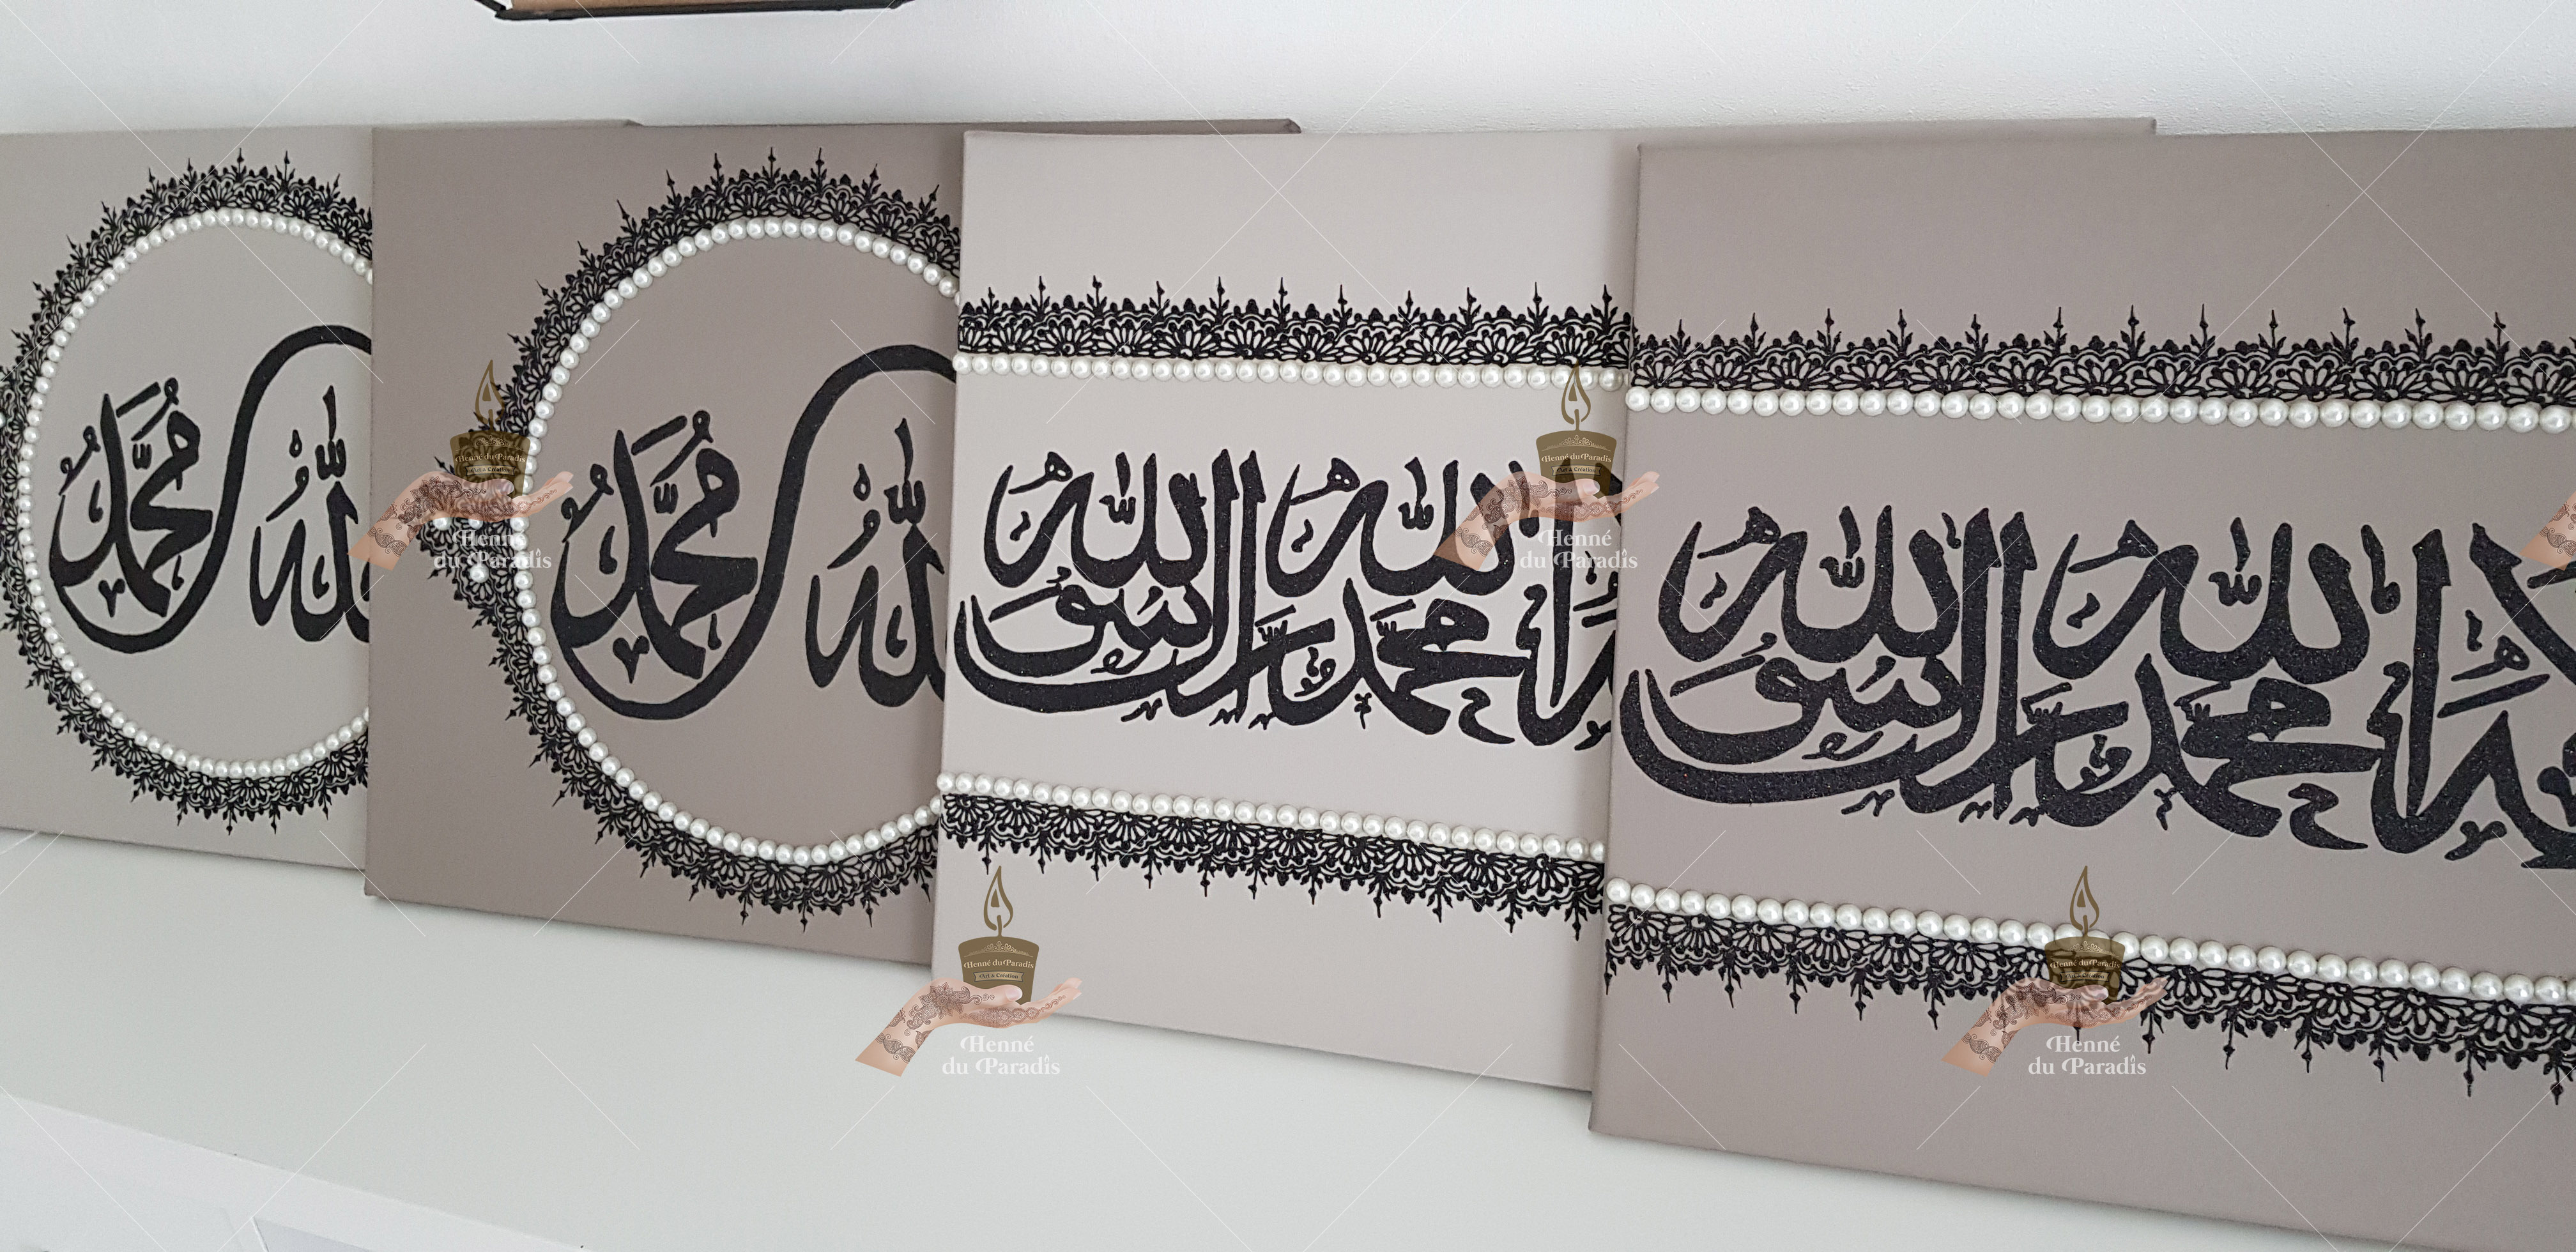 الله
محمد
الله
محمد
لا إله إلا الله
محمد رسول الله
لا إله إلا الله
محمد رسول الله
Henné du Paradis
Art & Création
Henné
du Paradis
Henné du Paradis
Art & Création
Henné
du Paradis
Henné du Paradis
Art & Création
Henné
du Paradis
Henné du Paradis
Henné
du Paradis